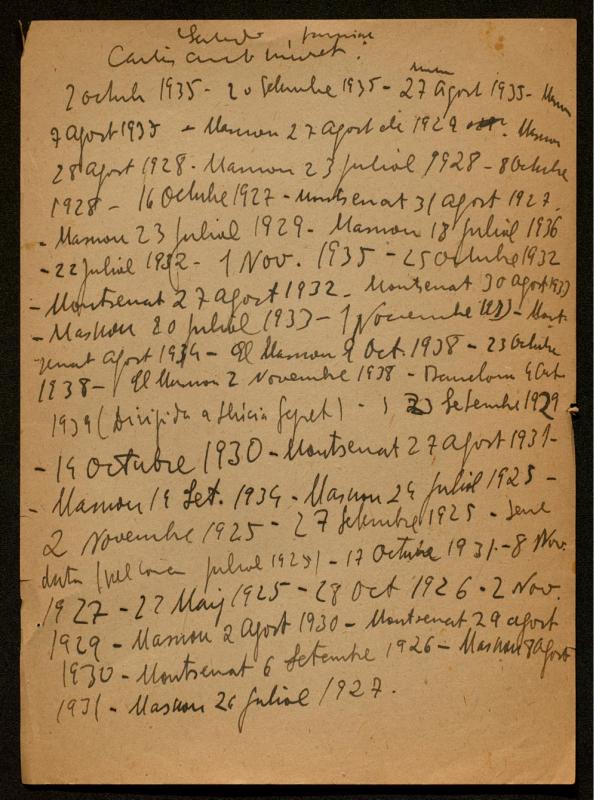 Cartes amb
2 octubre 1935 - 20 Setembre 1935 - 27 Agost 1935 -
9 Agost 1935 - Masnou 27 Agost de 1929 - Masnou
28 Agost 1928 - Masnou 23 juliol 1928 - 8 Octubre
1928 - 16 Octubre 1927 - Montserrat 31 agost 1927.
- Masnou 23 juliol 1929 - Masnou 18 juliol 1936
- 22 juliol 1932 - 1 Nov. 1935 - 25 Octubre 1932
- Montserrat 27 agost 1932 - Montserrat 30 agost 1933
- Masnou 20 juliol 1933 - 1 Novembre 1933 - Mont-
serrat Agost 1934 - El Masnou 9 Oct. 1938 - 23 Octubre
1938 - El Masnou 2 Novembre 1938 - Barcelona Oct
1939 (Dirigida a - 23 Setembre 1929
- 19 octubre 1930 - Montserrat 27 agost 1931 -
- Masnou 19 Set. 1934 - Masnou 24 juliol 1925 -
2 Novembre 1925 - 27 Setembre 1925 - Sense
data ( juliol 1925) - 17 Octubre 1931 - 8 Nov.
1927 - 22 Maig 1925 - 28 Oct 1926 - 2 Nov.
1929 - Masnou 2 Agost 1930 - Montserrat 29 agost
1930 - Montserrat 6 Setembre 1926 - Masnou 8 Agost
1931 - Masnou 26 juliol 1927.